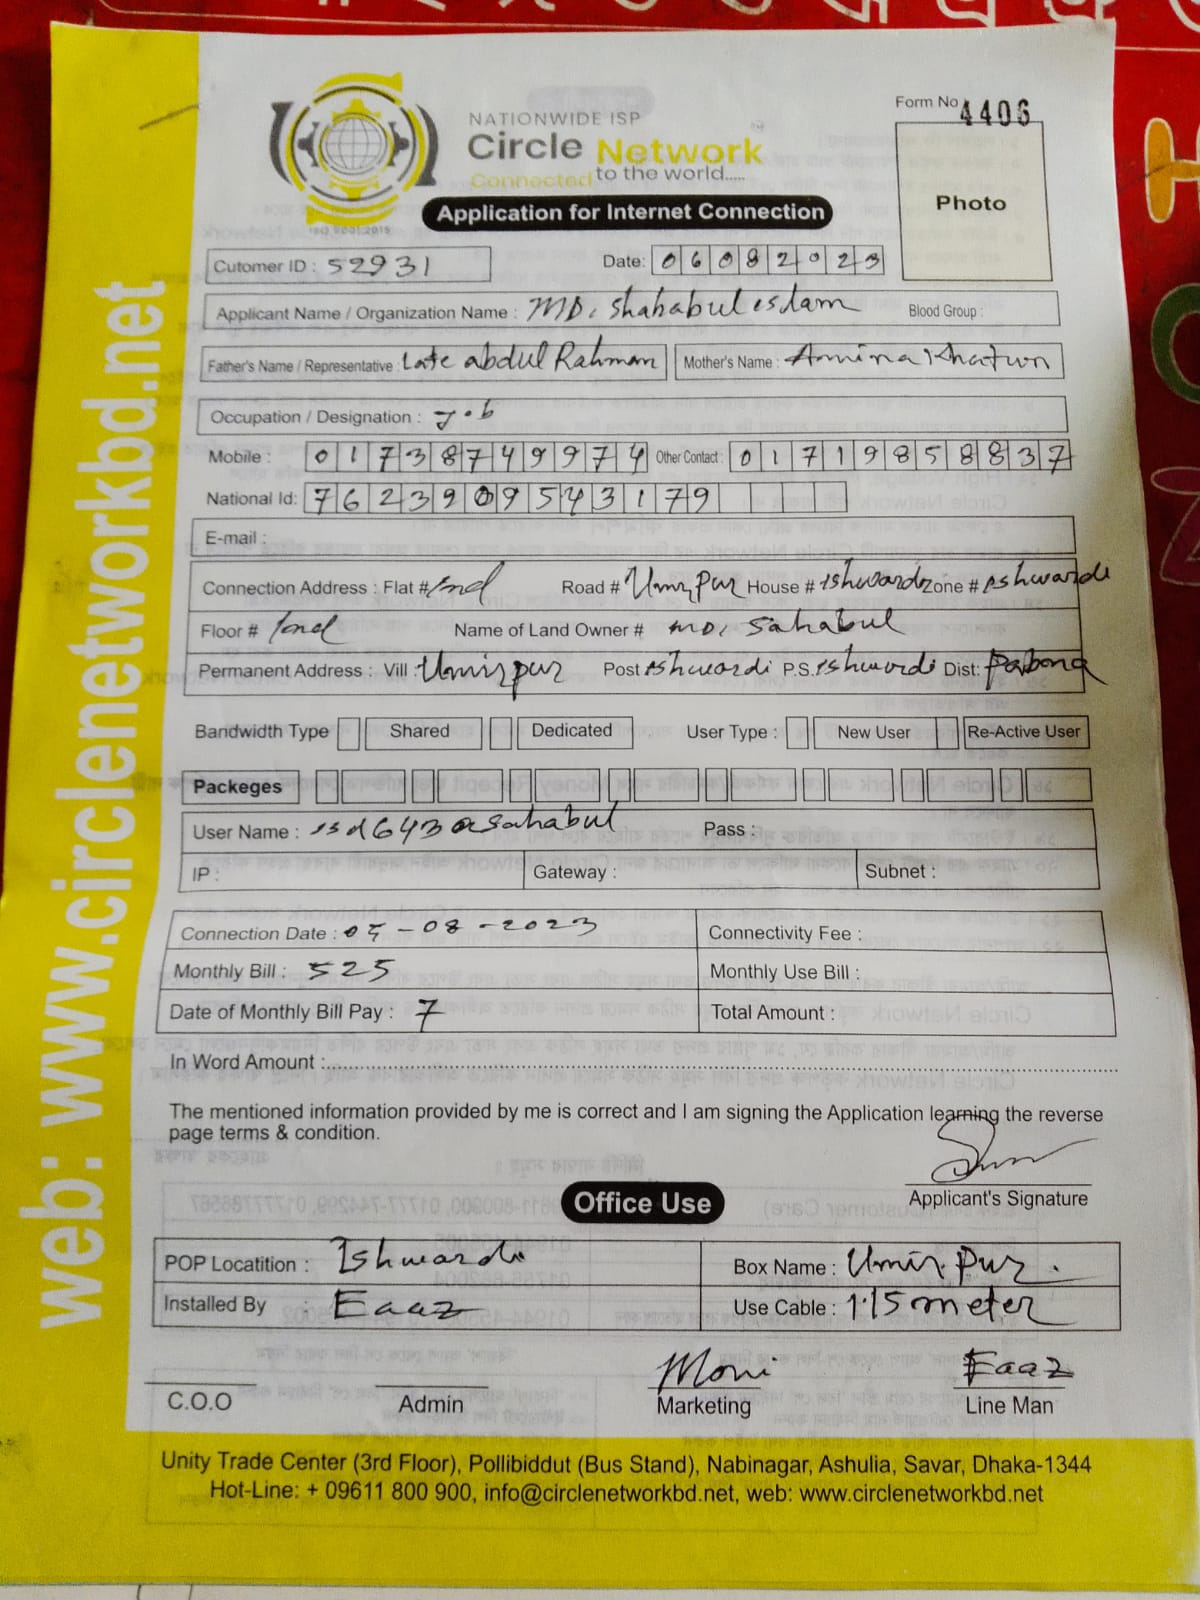 Form No 4406
NATIONWIDE ISP
Circle Network
Connected to the world.....
ISO 9001:2015
Photo
Application for Internet Connection
Cutomer ID : 52931 Date: 06082023
Applicant Name / Organization Name : MD. Shahabul islam Blood Group :
Father's Name / Representative : Late abdul Rahman Mother's Name : Amina Khatun
Occupation / Designation : Job
Mobile : 01738749974 Other Contact : 01719858837
National Id: 7623909543179
E-mail :
Connection Address : Flat # Ind Road # Umirpur House # ishwardi Zone # ishwardi
Floor # Ind Name of Land Owner # MD. Sahabul
Permanent Address : Vill : Umirpur Post ishwardi P.S. ishwardi Dist: Pabona
Bandwidth Type Shared Dedicated User Type : New User Re-Active User
Packeges
User Name : Pass :
IP : Gateway : Subnet :
Connection Date : 05-08-2023 Connectivity Fee :
Monthly Bill : 525 Monthly Use Bill :
Date of Monthly Bill Pay : 7 Total Amount :
In Word Amount :
The mentioned information provided by me is correct and I am signing the Application learning the reverse
page terms & condition.
Applicant's Signature
Office Use
POP Locatition : Ishwardi Box Name : Umirpur.
Installed By : Eaaz Use Cable : 115 meter
Moni Eaaz
C.O.O Admin Marketing Line Man
Unity Trade Center (3rd Floor), Pollibiddut (Bus Stand), Nabinagar, Ashulia, Savar, Dhaka-1344
Hot-Line: + 09611 800 900, info@circlenetworkbd.net, web: www.circlenetworkbd.net
web: www.circlenetworkbd.net